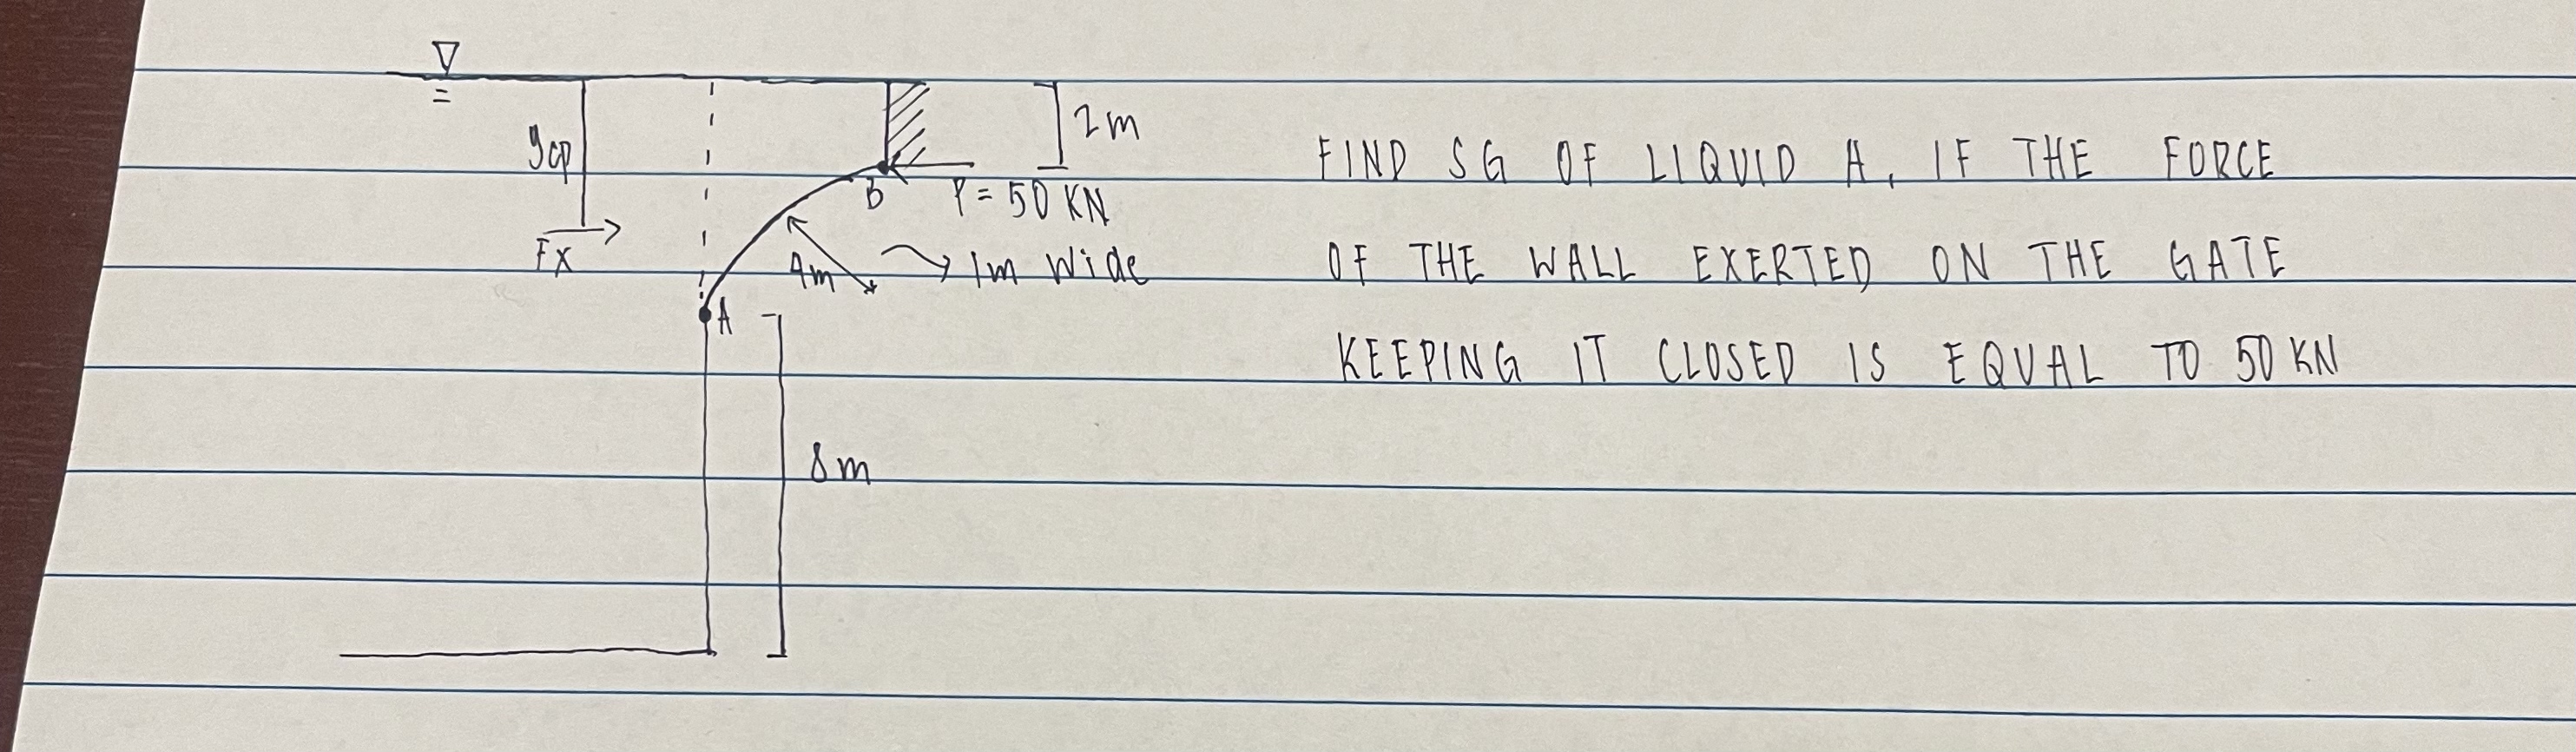 2m
ycp
FIND SG OF LIQUID A, IF THE FORCE
B
P = 50 KN
FX
4m
1m Wide
OF THE WALL EXERTED ON THE GATE
A
KEEPING IT CLOSED IS EQUAL TO 50 KN
8m